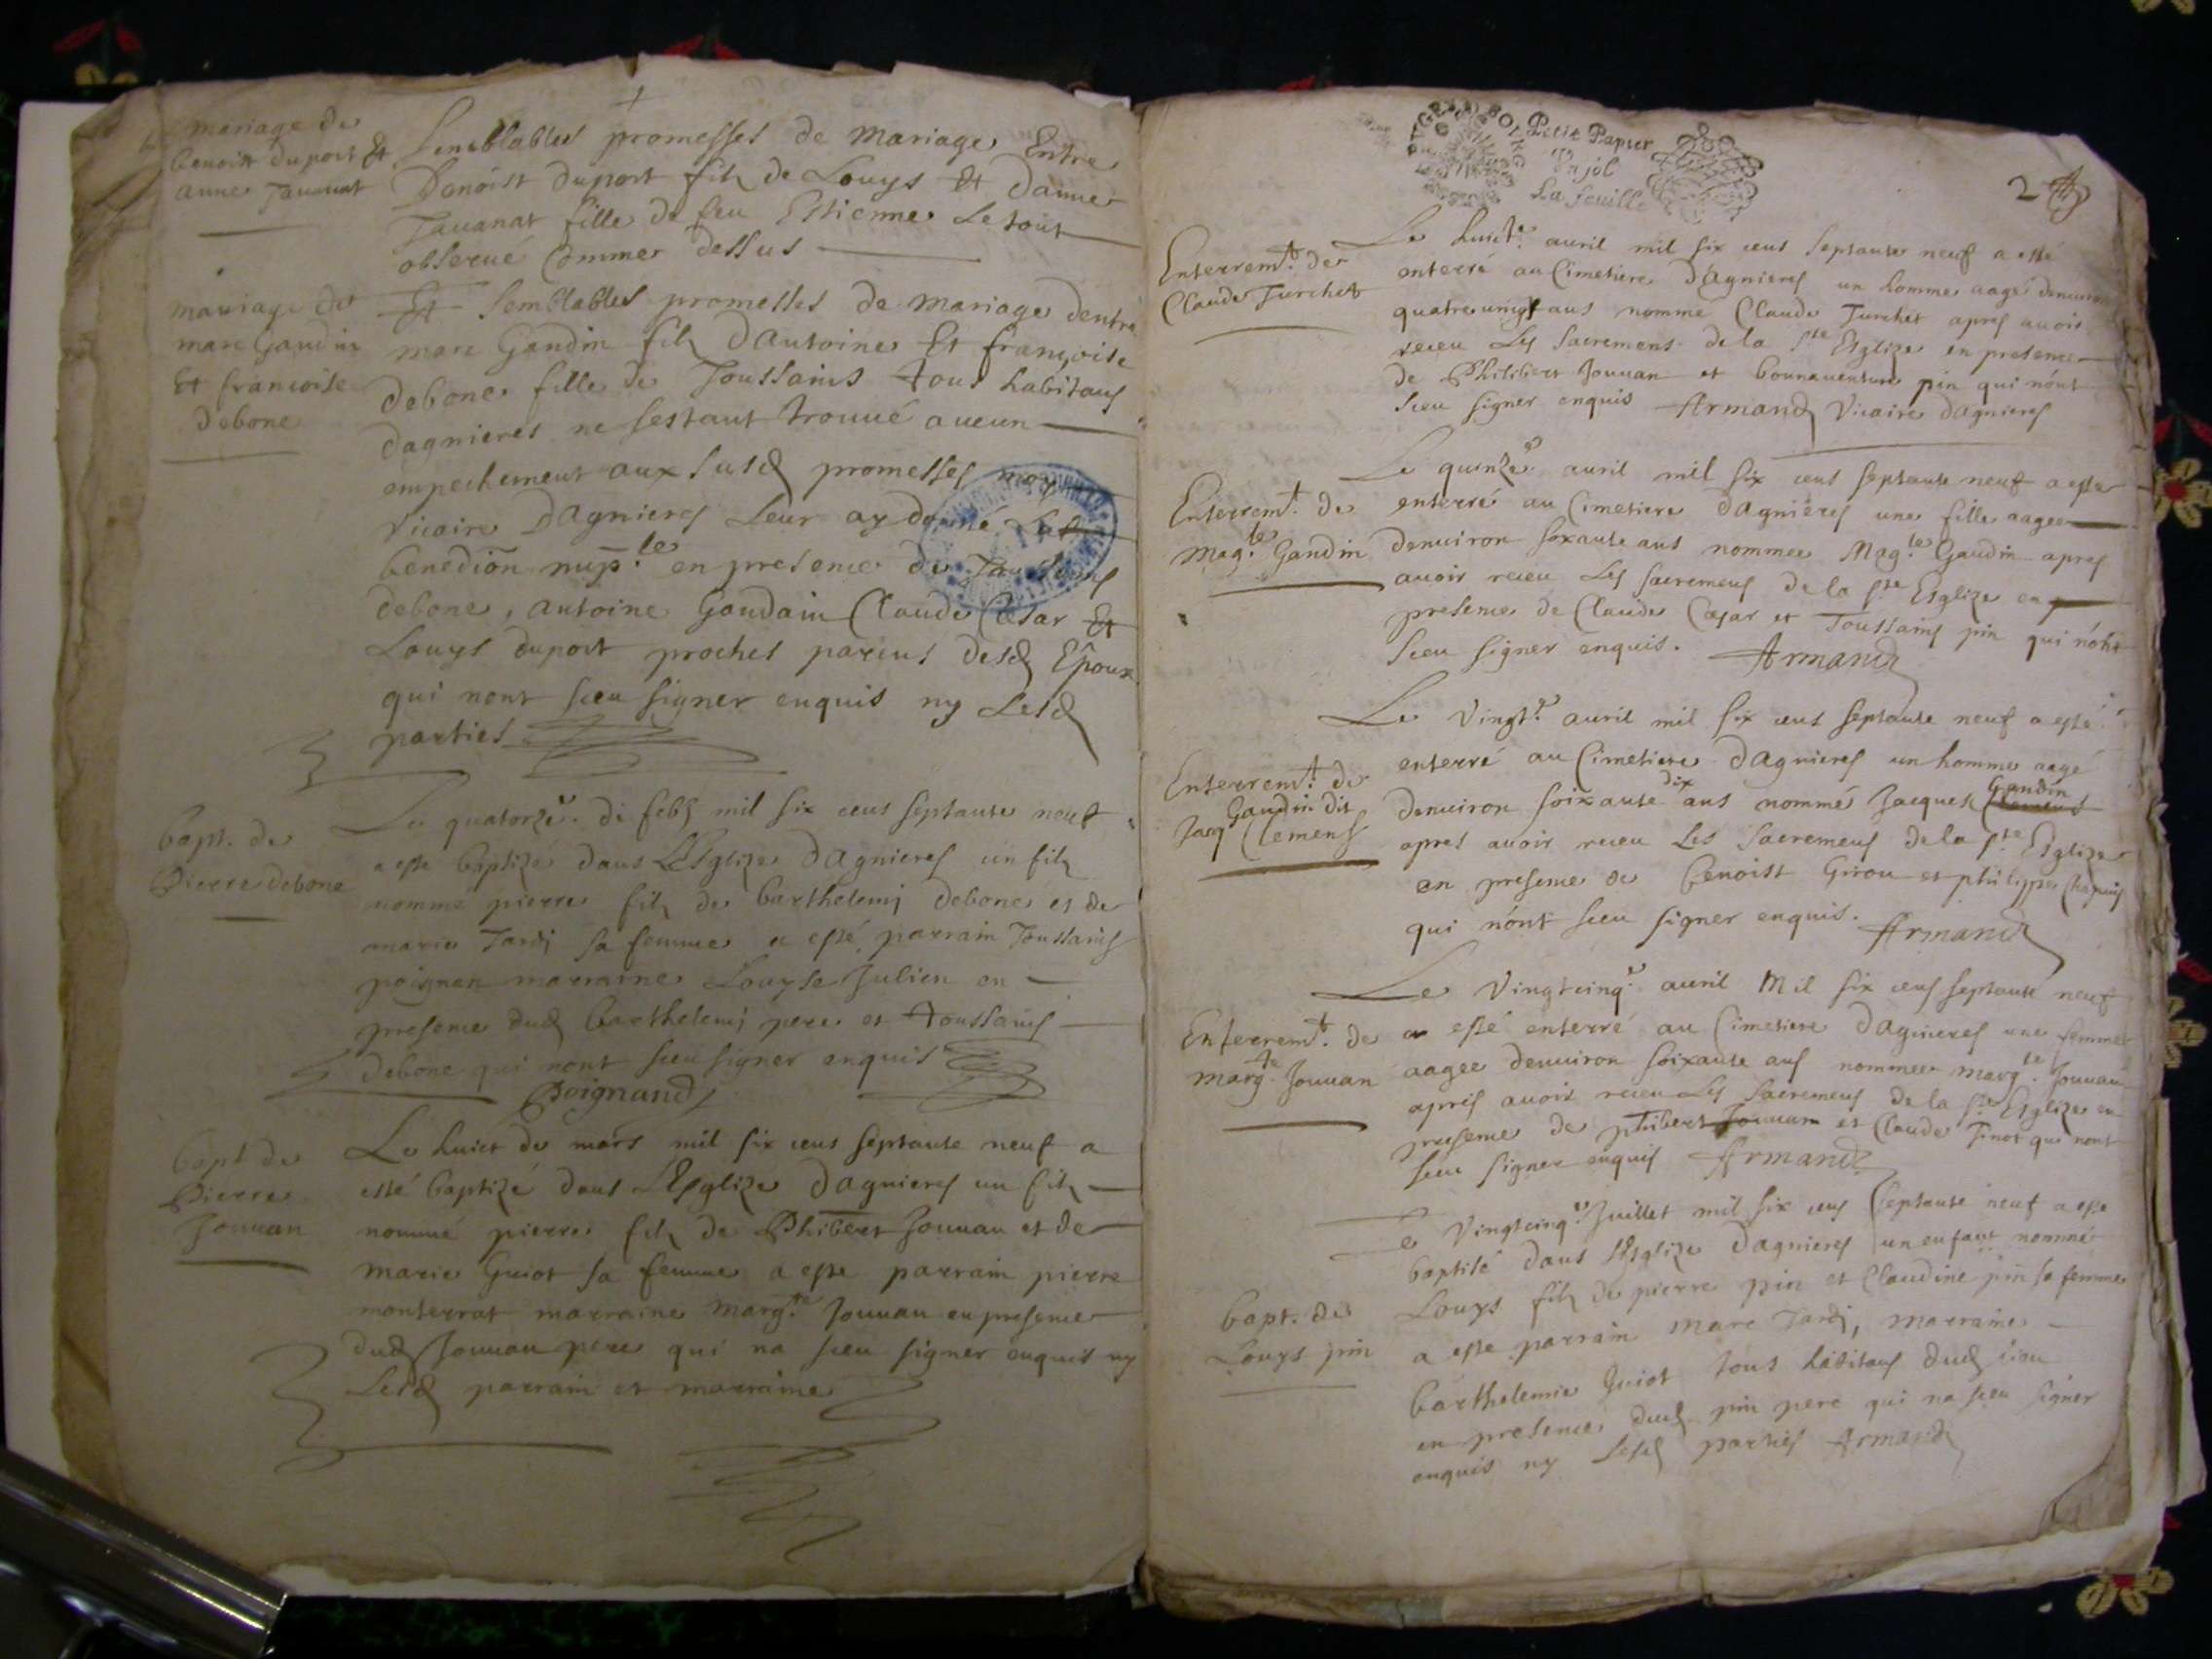 mariage de
benoist duport Et
anne Tavanat
Semblables promesses de mariage Entre
Benoist duport fils de Louys Et Danne
Tavanat fille de feu Estienne Le tout
observé Comme dessus
mariage de
marc Gaudin
Et francoise
debone
Et Semblables promesses de mariage dentre
marc Gaudin fils Dantoine Et françoise
debone fille de Toussains tous habitans
dagnieres ne sestant trouvé aucun
empechement aux susd promesses moy
vicaire Dagnieres Leur ay donné La
benedion nup.le en presence de Toussains
debone, antoine Gaudain Claude Cæsar Et
Louys duport proches parens desd Epoux
qui nont sceu signer enquis ny Lesd
parties
bapt. de
Pierre debone
Le quatorze. de feb mil six cens septante neuf
a esté baptizé dans L'Esglize dagnieres un fils
nommé pierre fils de barthelemj debone et de
marie Tardj sa femme a esté parrain Toussains
poignan marraine Louyse Julien en
presence dud barthelemj pere et Toussains
debone qui nont sceu signer enquis
Poignand
bapt de
Pierre
Jouvan
Le huict de mars mil six cens septante neuf a
esté baptizé dans L'Esglize dagnieres un fils
nommé pierre fils de Phibert Jouvan et de
marie Guiot sa femme a esté parrain pierre
monterrat marraine marg.te Jouvan en presence
dud Jouvan pere qui na sceu signer enquis ny
Lesd parrain et marraine
Petit Papier
Un sol
La feuille
2
Enterrem.t de
Claude Turchet
Le huict.e avril mil six cens septante neuf a esté
enterré au Cimetiere dagnieres un homme aagé denviron
quatrevingt ans nomme Claude Turchet apres avoir
receu Les sacremens de la s.te Esglize en presence
de Philibert Jouvan et bonnaventure pin qui nont
sceu signer enquis Armand Vicaire dagnieres
Enterrem.t de
Mag.le Gaudin
Le quinze.e avril mil six cens septante neuf a esté
enterré au Cimetiere dagnieres une fille aagee
denviron soixante ans nommee Mag.le Gaudin apres
avoir receu Les sacremens de la s.te Esglize en
presence de Claude Cæsar et Toussains pin qui nont
sceu signer enquis. Armand
Enterrem.t de
Gaudin dit
Jacq Clemens
Le Vingt.e avril mil six cens septante neuf a esté
enterré au Cimetiere dagnieres un homme aagé
dix Gaudin
denviron soixante ans nommé Jacques
apres avoir receu Les sacremens de la s.te Esglize
en presence de benoist Girou et philippe Chapuis
qui nont sceu signer enquis. Armand
Enterrem.t de
marg.te Jouvan
Le Vingtcinq.e avril mil six cens septante neuf
a esté enterré au Cimetiere dagnieres une femme
aagee denviron soixante ans nommee marg.te Jouvan
apres avoir receu Les sacremens de la s.te Esglize en
presence de phibert Jouvan et Claude Pinot qui nont
sceu signer enquis Armand
bapt. de
Louys pin
Le Vingtcinq.e Juillet mil six cens septante neuf a esté
baptisé dans L'Esglize dagnieres un enfant nommé
Louys fils de pierre pin et Claudine pin sa femme
a esté parrain marc Tardj, marraine
barthelemie Guiot tous habitans dud lieu
en presence dud pin pere qui na sceu signer
enquis ny Lesd parties Armand